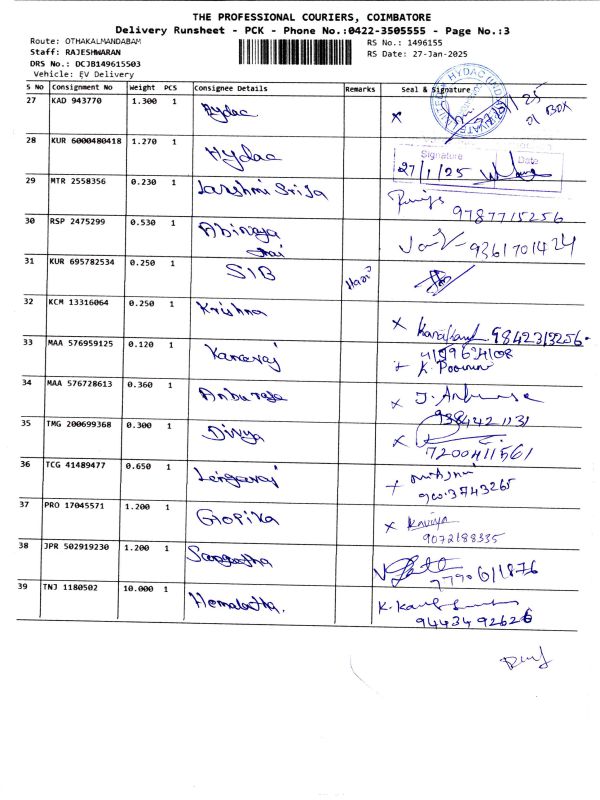 THE PROFESSIONAL COURIERS, COIMBATORE
Delivery Runsheet - PCK - Phone No.:0422-3505555 - Page No.:3
Route: OTHAKALMANDABAM
RS No.: 1496155
Staff: RAJESHWARAN
RS Date: 27-Jan-2025
DRS No.: DCJB149615503
Vehicle: EV Delivery
S No Consignment No Weight PCS Consignee Details Remarks Seal & Signature
27 KAD 943770 1.300 1 Hydac x 01 BOX
28 KUR 6000480418 1.270 1 Hydac Signature Date 27/1/25
29 MTR 2558356 0.230 1 Larshmi Srija 9787715256
30 RSP 2475299 0.530 1 Abinaya 9361701424
31 KUR 695782534 0.250 1 SIB Hari
32 KCM 13316064 0.250 1 Krishna x
33 MAA 576959125 0.120 1 Kanaraj K. Poorni
34 MAA 576728613 0.360 1 Anburaja x J.
9384421131
35 TMG 200699368 0.300 1 Divya x
7200411561
36 TCG 41489477 0.650 1 Lingaraj
37 PRO 17045571 1.200 1 Gopika x Kaviya
9072188335
38 JPR 502919230 1.200 1 Sangeetha
39 TNJ 1180502 10.000 1 Hemalatha.
9443492626